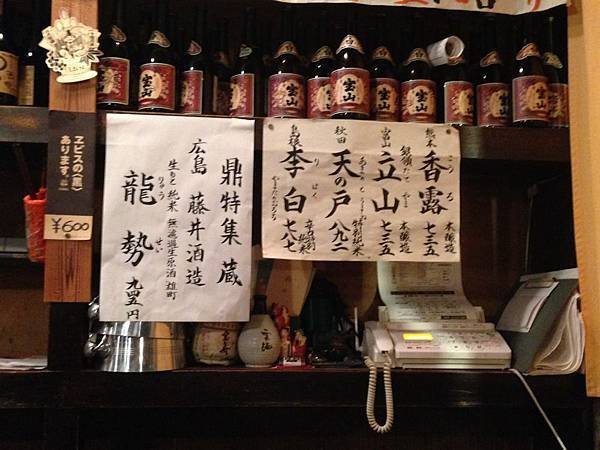 宝山
宝山
宝山
宝山
宝山
宝山
宝山
ヱビスの〈黒〉
あります。
¥600
鼎特集 蔵
広島 藤井酒造
生もと純米 無濾過生原酒 雄町
龍勢
りゅう せい
九四五円
熊本
香露
こうろ
本醸造
七三五
富山
立山
本醸造
七三五
秋田
天の戸
特別純米
八九二
島根
李白
りはく
七八七